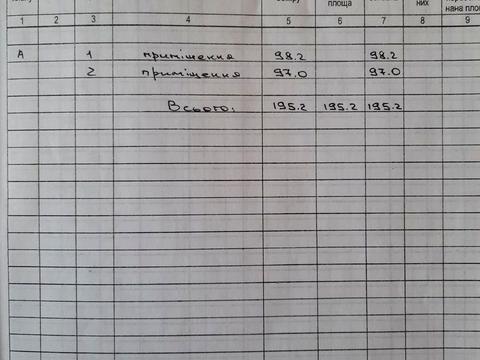 площа них нана пло
1 2 3 4 5 6 7 8 9
А 1 приміщення 98.2 98.2
2 приміщення 97.0 97.0
Всього: 195.2 195.2 195.2